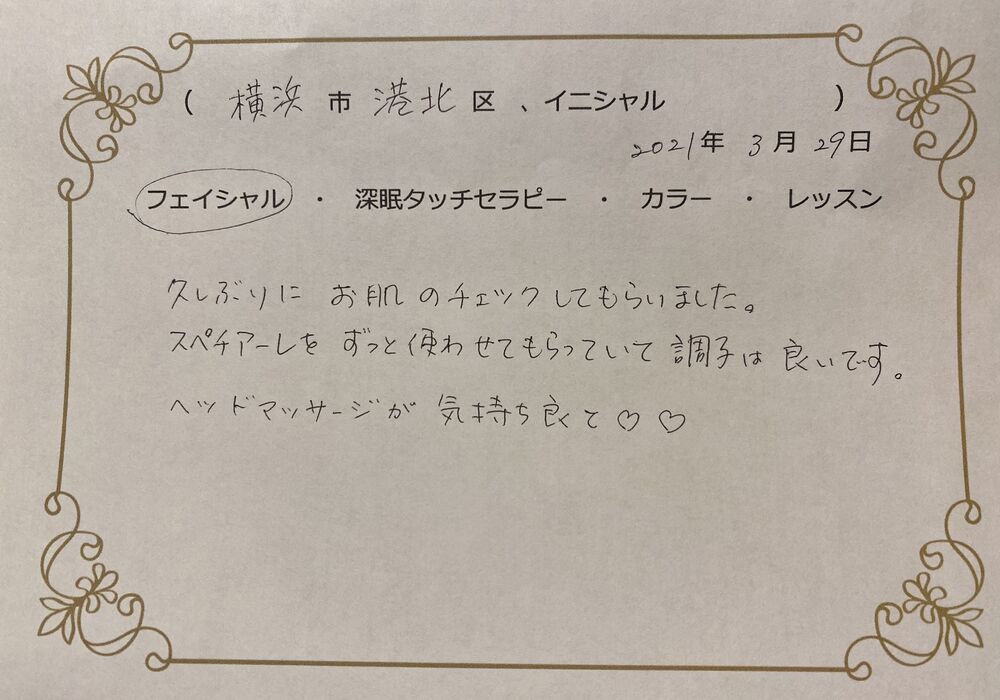 ( 横浜 市 港北 区 、イニシャル )
2021年 3月 29日
フェイシャル ・ 深眠タッチセラピー ・ カラー ・ レッスン
久しぶりに お肌のチェックしてもらいました。
スペチアーレを ずっと使わせてもらっていて 調子は良いです。
ヘッドマッサージが 気持ち良くて♡♡